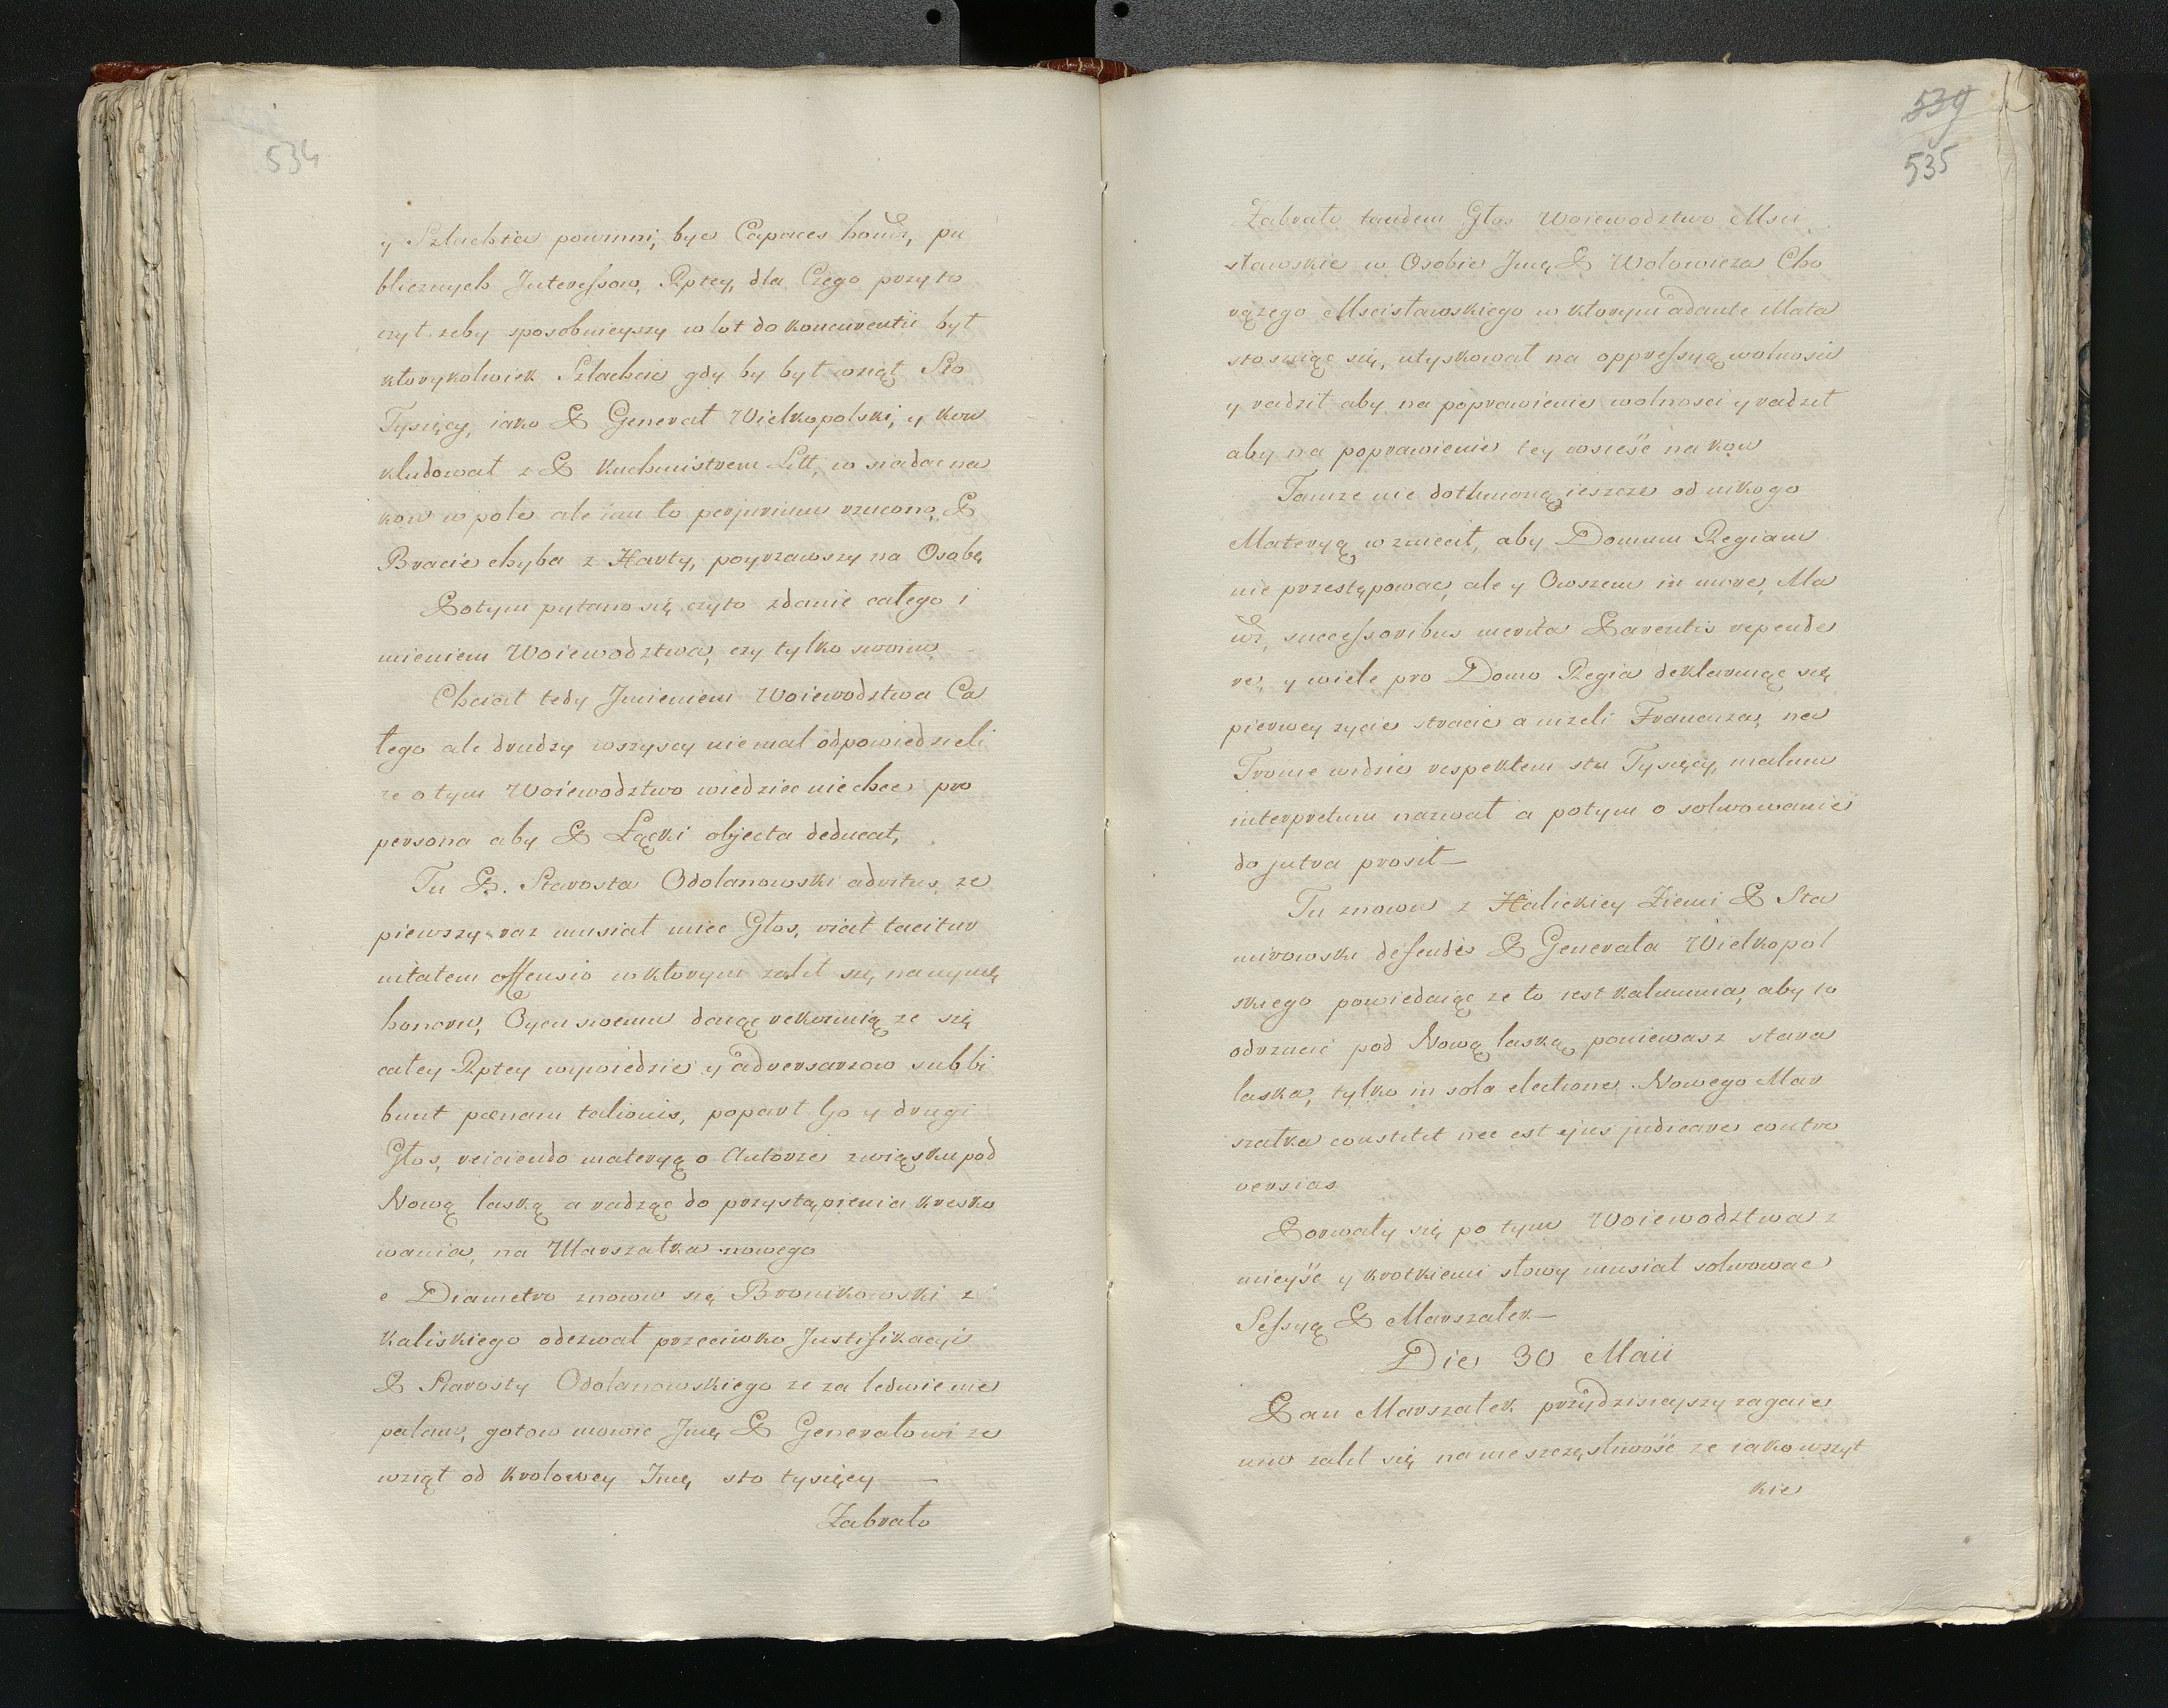 534
y Szlachta powinni, byc Capaces honor, pu
blicznych Interessow, Rptey, dla Czego przyto
czyt zeby sposobnieyszy w lot do koncurentii był
ktorykolwiek Szlachcic gdy by był wziął Sto
Tysięcy, iako P Generał Wielkopolski, y kon
kludował z P Kuchmistrzem Litt, w siadac na
kon w pole ale imu to perjurium rzucono, P
Bracie chyba z Harty, poyrzawszy na Osobę
Potym pytano się czyto zdanie całego i
mieniem Woiewodztwa, czy tylko swoim
Chciał tedy Jmieniem Woiewodstwa Ca
łego ale drudzy wszyscy niemal odpowiedzieli
ze o tym Woiewodztwo wiedziec niechce pro
persona aby P Łącki objecta deducat,
Tu P. Starosta Odolanowski advitus, ze
pierwszy raz musiał miec Głos, riat tacitur
nitatem offensio w ktorym zalił się na uymę
honoru, Oycu swemu daiąc rekoimią ze się
całey Rptey wywiedzie y adversarzow subbi
bunt pænam talionis, poparł Go y drugi
Głos, reiciendo materyą o Autorze związku pod
Nową laską a radząc do przystąpienia kresko
wania, na Marszałka nowego
e Diametro znowu się Bronikowski z
Kaliskiego odezwał przeciwko Justifikacyi
P Starosty Odolanowskiego ze za ledwie nie
palam, gotow mowic Jmę P Generałowi ze
wziął od Krolowey Jmę sto tysięcy —
Zabrało
539
535
Zabrało tandem Głos Woiewodztwo Msci
sławskie w Osobie Jmę P Wołowicza Cho
rążego Mscisławskiego w ktorym adante Mata
stosuiąc się, utyskował na oppressyą wolnosci
y radził aby na poprawienie wolnosci y radził
aby na poprawienie tey wsieść na kon
Tamze nie dotknioną ieszcze od nikogo
Materyą wzniecił, aby Domum Regiam
nie przestępowac, ale y Owszem in more, Ma
ur, successoribus merita Parentis repende
re, y wiele pro Domo Regia deklaruiąc się
pierwey zycie stracic a nizeli Francuza, na
Tronie widzie respektem sta Tysięcy, malum
interpretum nazwał a potym o solwowanie
do jutra prosił —
Tu znowu z Halickiey Ziemi P Sta
mirowski defendes P Generała Wielkopol
skiego powiedaiąc ze to iest kalumnia, aby to
odrzucić pod Nową laską, poniewasz stara
laska, tylko in sola electione Nowego Mar
szałka constitit nec est ejus judicare contro
versias
Porwały się po tym Woiewodztwa z
mieyść y krotkiemi słowy musiał solwowac
Sessyą P Marszałek —
Die 30 Maii
Pan Marszałek przy dzisieyszy zagaie
niu zalił się na nieszczęsliwość ze iako wszyt
kie